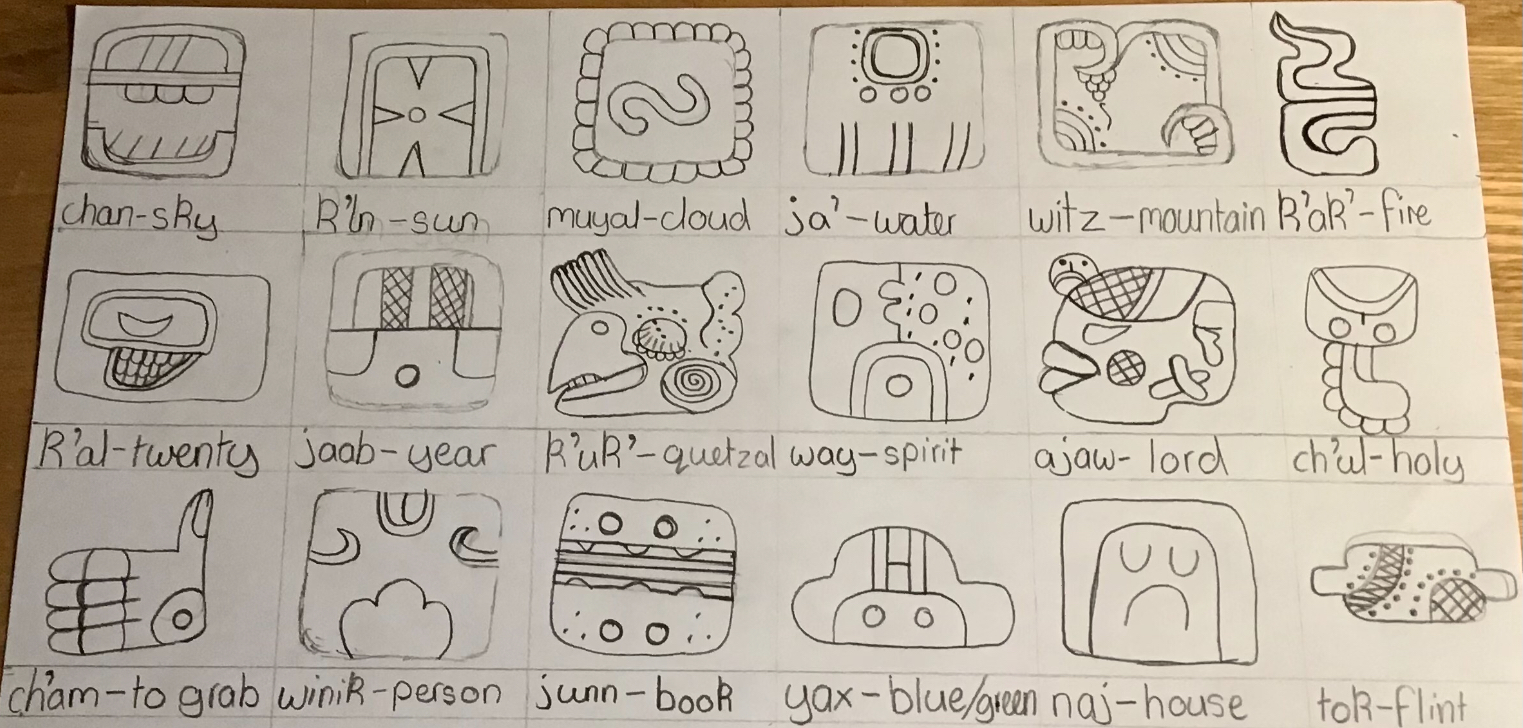 chan-sky k'in-sun muyal-cloud ja'-water witz-mountain k'ak'-fire
k'al-twenty jaab-year k'uk'-quetzal way-spirit ajaw-lord ch'ul-holy
ch'am-to grab winik-person junn-book yax-blue/green naj-house tok-flint